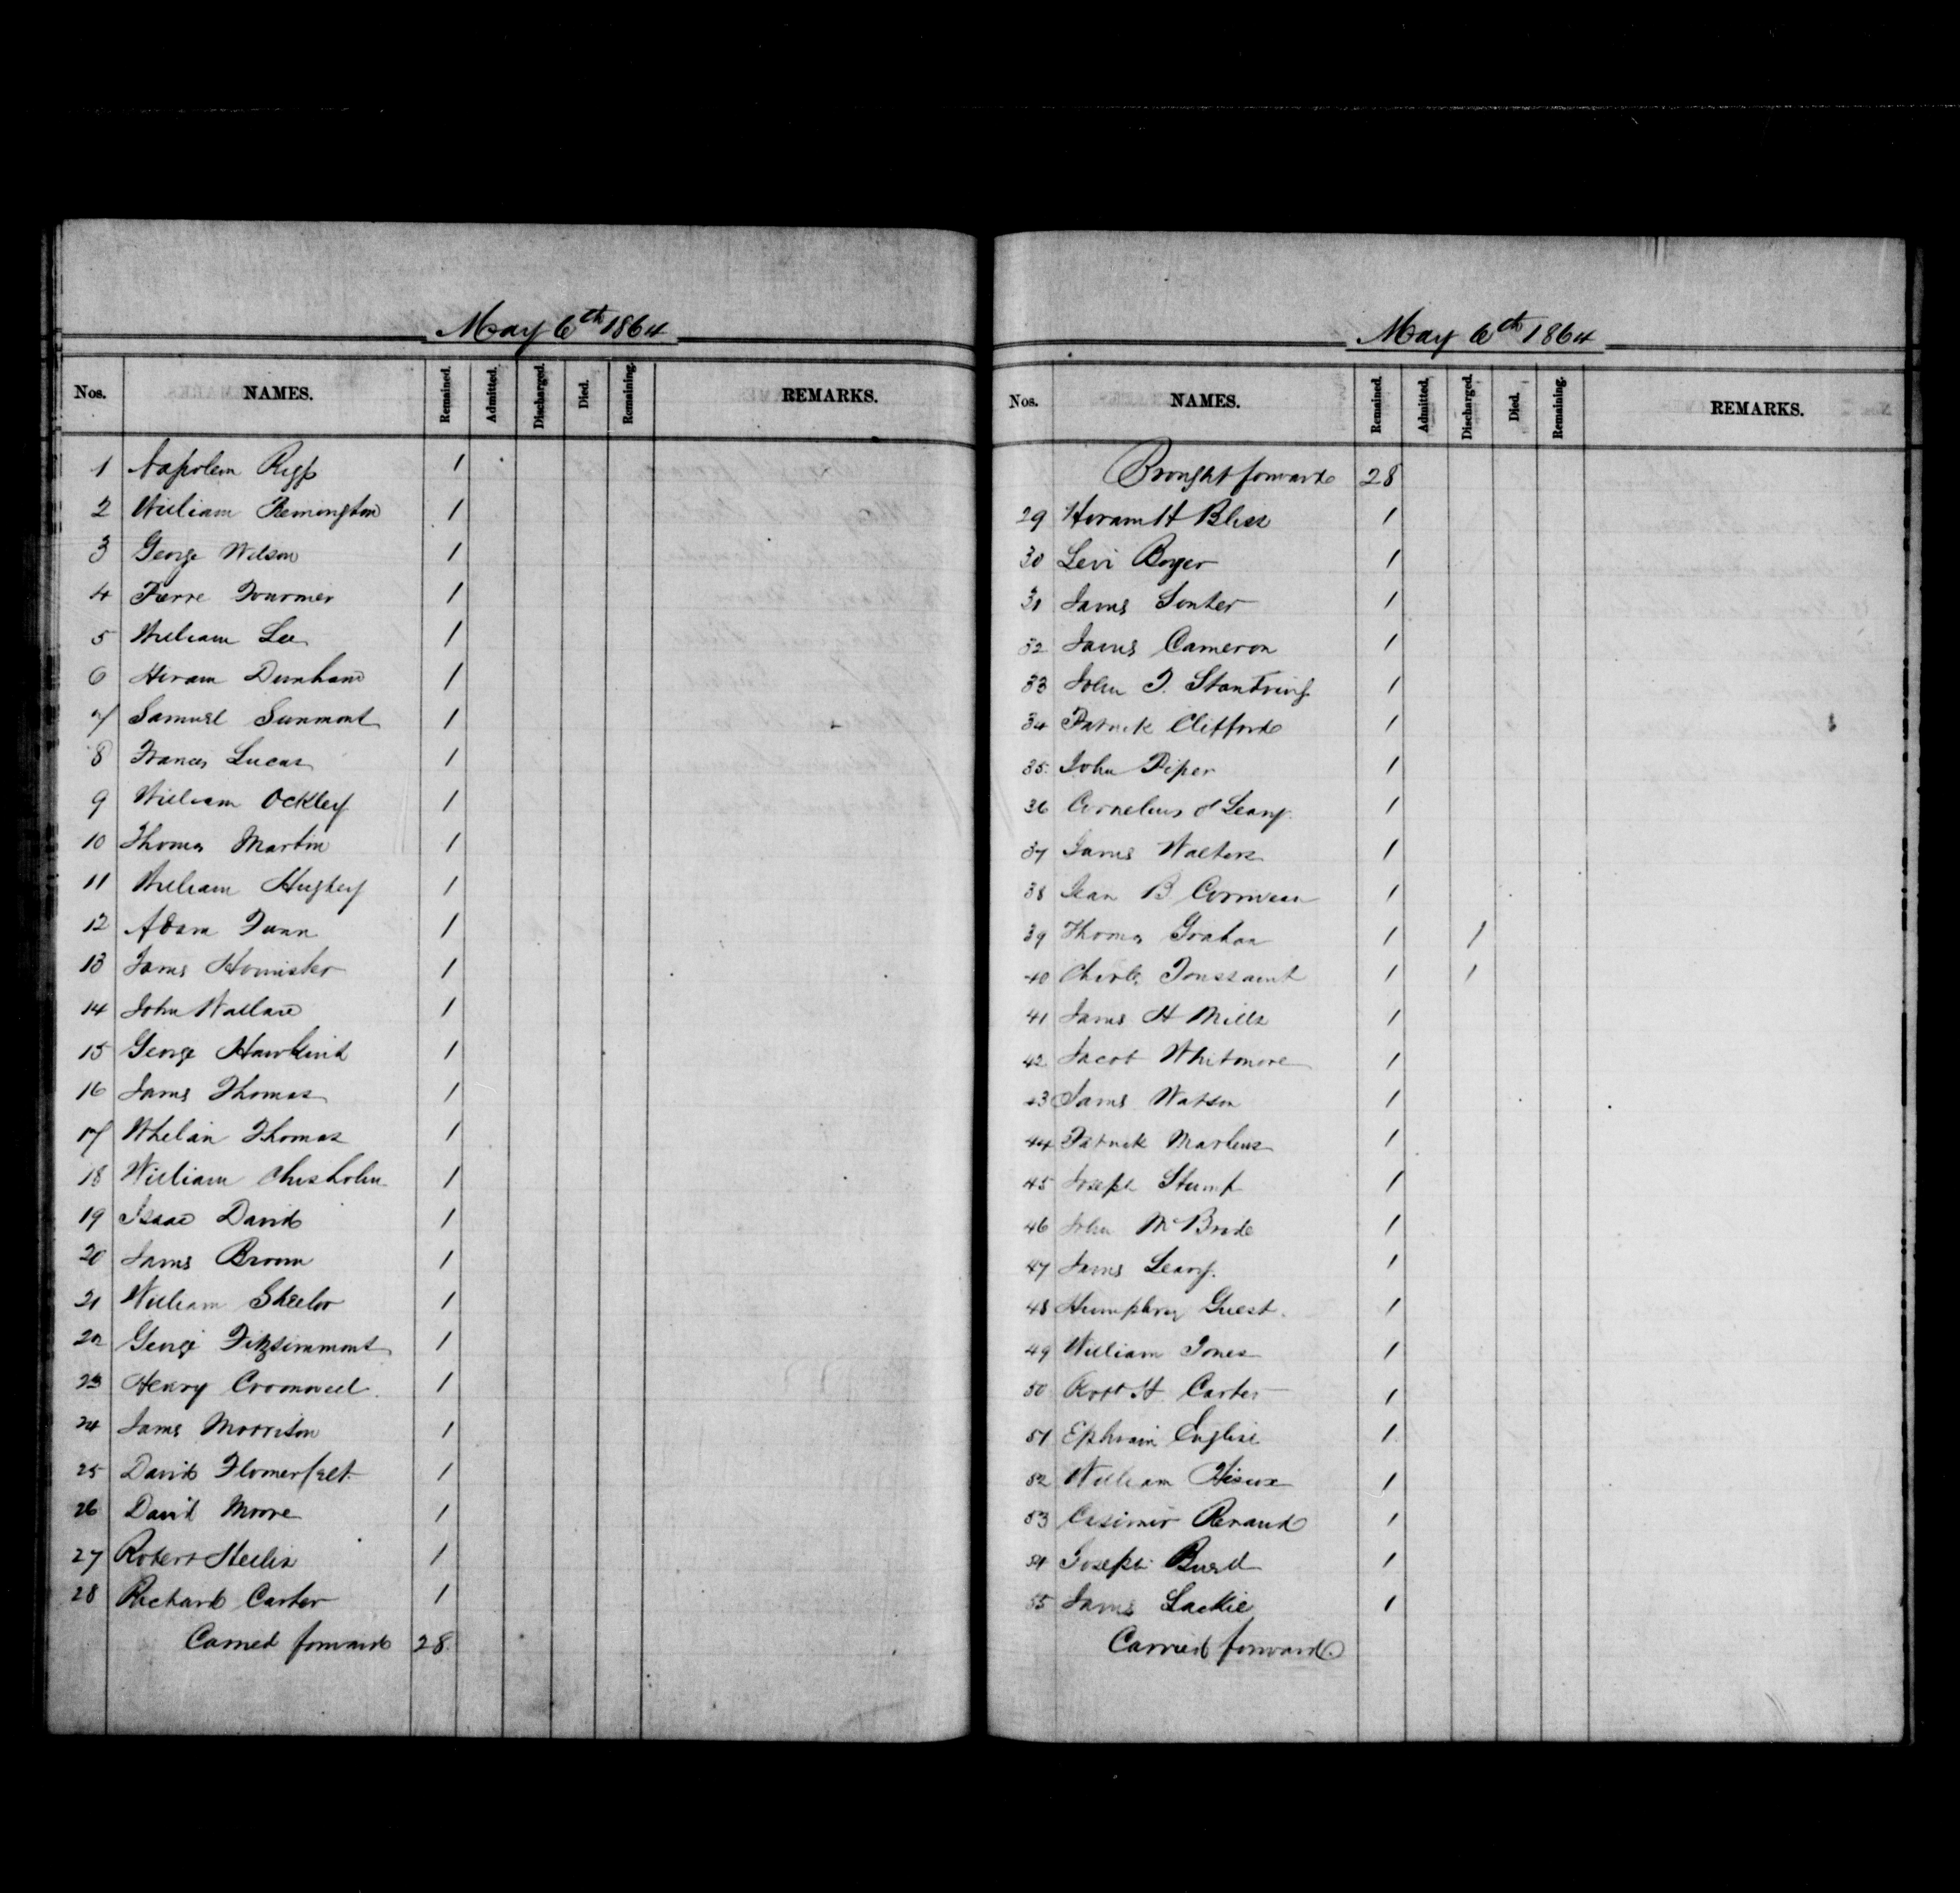 May 6th 1864
Nos. NAMES. Remained. Admitted. Discharged. Died. Remaining. REMARKS.
1 Napoleon 1
2 William Remington 1
3 George Wilson 1
4 Pierre Fournier 1
5 William Lee 1
6 Hiram Dunham 1
7 Samuel 1
8 Francis Lucas 1
9 William Ockley 1
10 Thomas Martin 1
11 William Hughey 1
12 Adam Fann 1
13 James 1
14 John Wallace 1
15 George Hawkins 1
16 James Thomas 1
17 Whelan Thomas 1
18 William Chisholm 1
19 Isaac David 1
20 James Brown 1
21 William Sheeler 1
22 George Fitzsimmons 1
23 Henry Cromwell 1
24 James Morrison 1
25 David Flomerfelt 1
26 David Moore 1
27 Robert 1
28 Richard Carter 1
Carried forward 28
May 6th 1864
Nos. NAMES. Remained. Admitted. Discharged. Died. Remaining. REMARKS.
Brought forward 28
29 Hiram H Bliss 1
30 Levi Boyer 1
31 James Souter 1
32 James Cameron 1
33 John T. Standring 1
34 Patrick Clifford 1
35 John Piper 1
36 Cornelius O'Leary 1
37 James Walters 1
38 Jean B. Corriveau 1
39 Thomas Graham 1 1
40 Charles Toussaint 1 1
41 James H Mills 1
42 Jacob Whitmore 1
43 James Watson 1
44 Patrick 1
45 Joseph Stump 1
46 John McBride 1
47 James Leary. 1
48 Humphrey Guest. 1
49 William Jones 1
50 Robt H. Carter 1
51 Ephraim English 1
52 William Hiscox 1
53 Casimir Renaud 1
54 Joseph 1
55 James Lackie 1
Carried forward